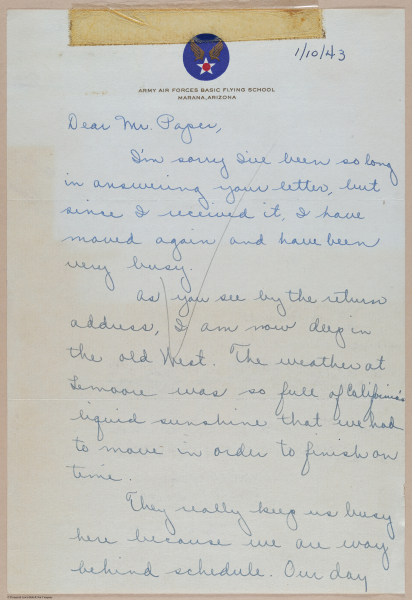 1/10/43
ARMY AIR FORCES BASIC FLYING SCHOOL
MARANA, ARIZONA
Dear Mr. Paper,
I'm sorry I've been so long
in answering your letter, but
since I received it, I have
moved again and have been
very busy.
As you see by the return
address, I am now deep in
the old West. The weather at
Lemoore was so full of California's
liquid sunshine that we had
to move in order to finish on
time.
They really keep us busy
here because we are way
behind schedule. Our day